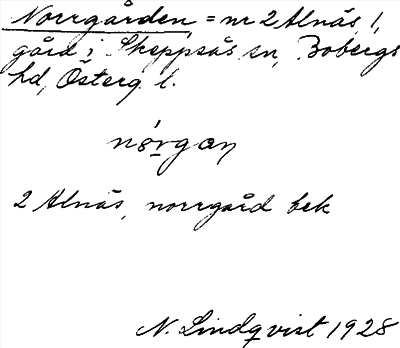 Norrgården = nr 2 Alnäs, 1,
gård i Skeppsås sn, Bobergs
hd, Österg. l.
nórgan
2 Alnäs, norrgård bek
N. Lindqvist 1928